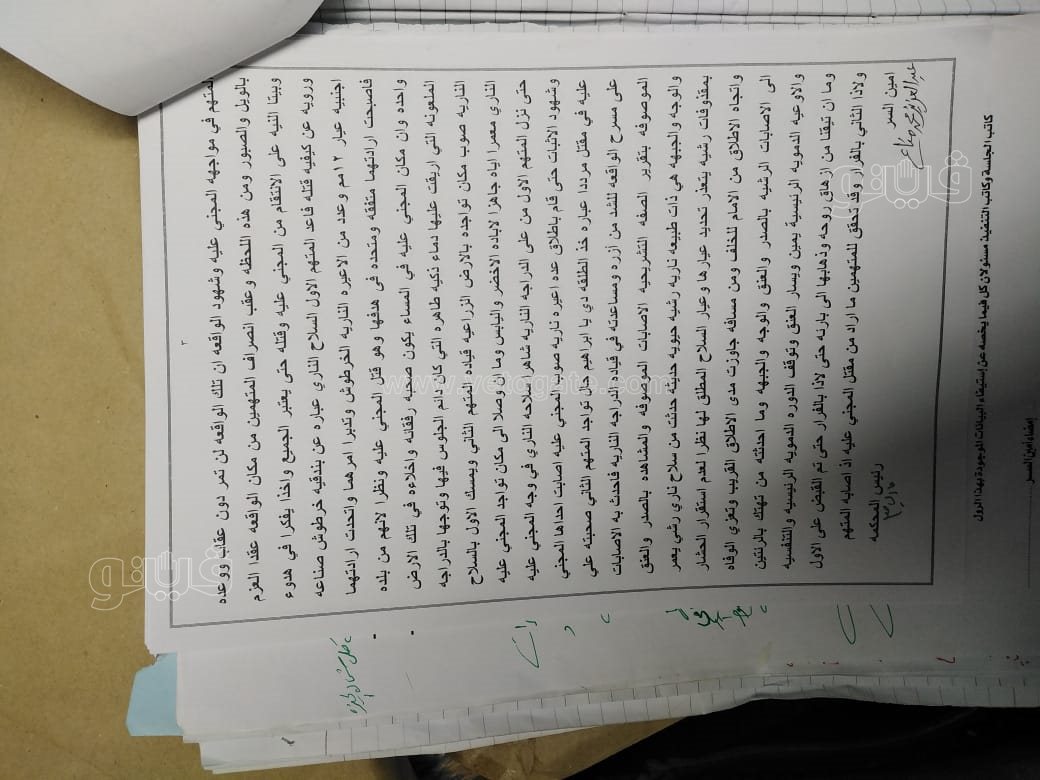 ٣
المتهم في مواجهه المجني عليه وشهود الواقعه ان تلك الواقعه لن تمر دون عقاب ووعده
بالويل والصبور ومن هذه اللحظه وعقب انصراف المتهمين من مكان الواقعه عقدا العزم
وبيتا النيه على الانتقام من المجني عليه وقتله حتى يعتبر الجميع واخذا يفكرا في هدوء
ورويه عن كيفيه قتله فاعد المتهم الاول السلاح الناري عباره عن بندقيه خرطوش صناعه
اجنبيه عيار ١٢مم وعدد من الاعيره الناريه الخرطوش وتدبرا امرهما واتحدت ارادتهما
فاصبحت ارادتهما متفقه ومتحده في هدفها وهو قتل المجني عليه ونظرا لانهم من بلده
واحده وان مكان المجني عليه في المساء يكون صحبه رفقائه واخلاءه في تلك الارض
الملعونه التي اريقت عليها دماء ذكيه طاهره التي كان دائم الجلوس فيها وتوجها بالدراجه
الناريه صوب مكان تواجده بالارض الزراعيه قياده المتهم الثاني ويمسك الاول بالسلاح
الناري معمرا اياه جاهزا لاباده الاخضر واليابس وما ان وصلا الى مكان تواجد المجني عليه
حتى نزل المتهم الاول من على الدراجه الناريه شاهرا سلاحه الناري في وجه المجني عليه
وشهود الاثبات حتى قام باطلاق عده اعيره ناريه صوب المجني عليه اصابت احداها المجني
عليه في مقتل مرددا عباره خد الطلقه دي يا ابراهيم حال تواجد المتهم الثاني صحبته على
على مسرح الواقعه للشد من أزره ومساعدته في قياده الدراجه الناريه فاحدث به الاصابات
الموصوفه بتقرير الصفه التشريحيه الاصابات الموصوفه والمشاهده بالصدر والعنق
والوجه والجبهه هي ذات طبيعه ناريه رشيه حيويه حديثه حدثت من سلاح ناري رشي يعمر
بمقذوفات رشيه يتعذر تحديد عيارها وعيار السلاح المطلق لها نظرا لعدم استقرار الحشار
واتجاه الاطلاق من الامام للخلف ومن مسافه جاوزت مدى الاطلاق القريب وتعزي الوفاه
الى الاصابات الرشيه بالصدر والعنق والوجه والجبهه وما احدثته من تهتك بالرئتين
والاوعيه الدمويه الرئيسية يمين ويسار العنق وتوقف الدوره الدمويه الرئيسيه والتنفسيه
وما ان تيقنا من ازهاق روحه وذهابها الى بارئه حتى لاذا بالفرار حتى تم القبض على الاول
ولاذا الثاني بالفرار وقد تحقق للمتهمين ما اراد من مقتل المجني عليه اذ اصابه المتهم
امين السر
رئيس المحكمه
كاتب الجلسة وكاتب التنفيذ مسئولان كل فيما يخصه عن إستيفاء البيانات الموجودة بهذا الرول
امضاء أمين السر
فيتو
www.vetogate.com
فيتو